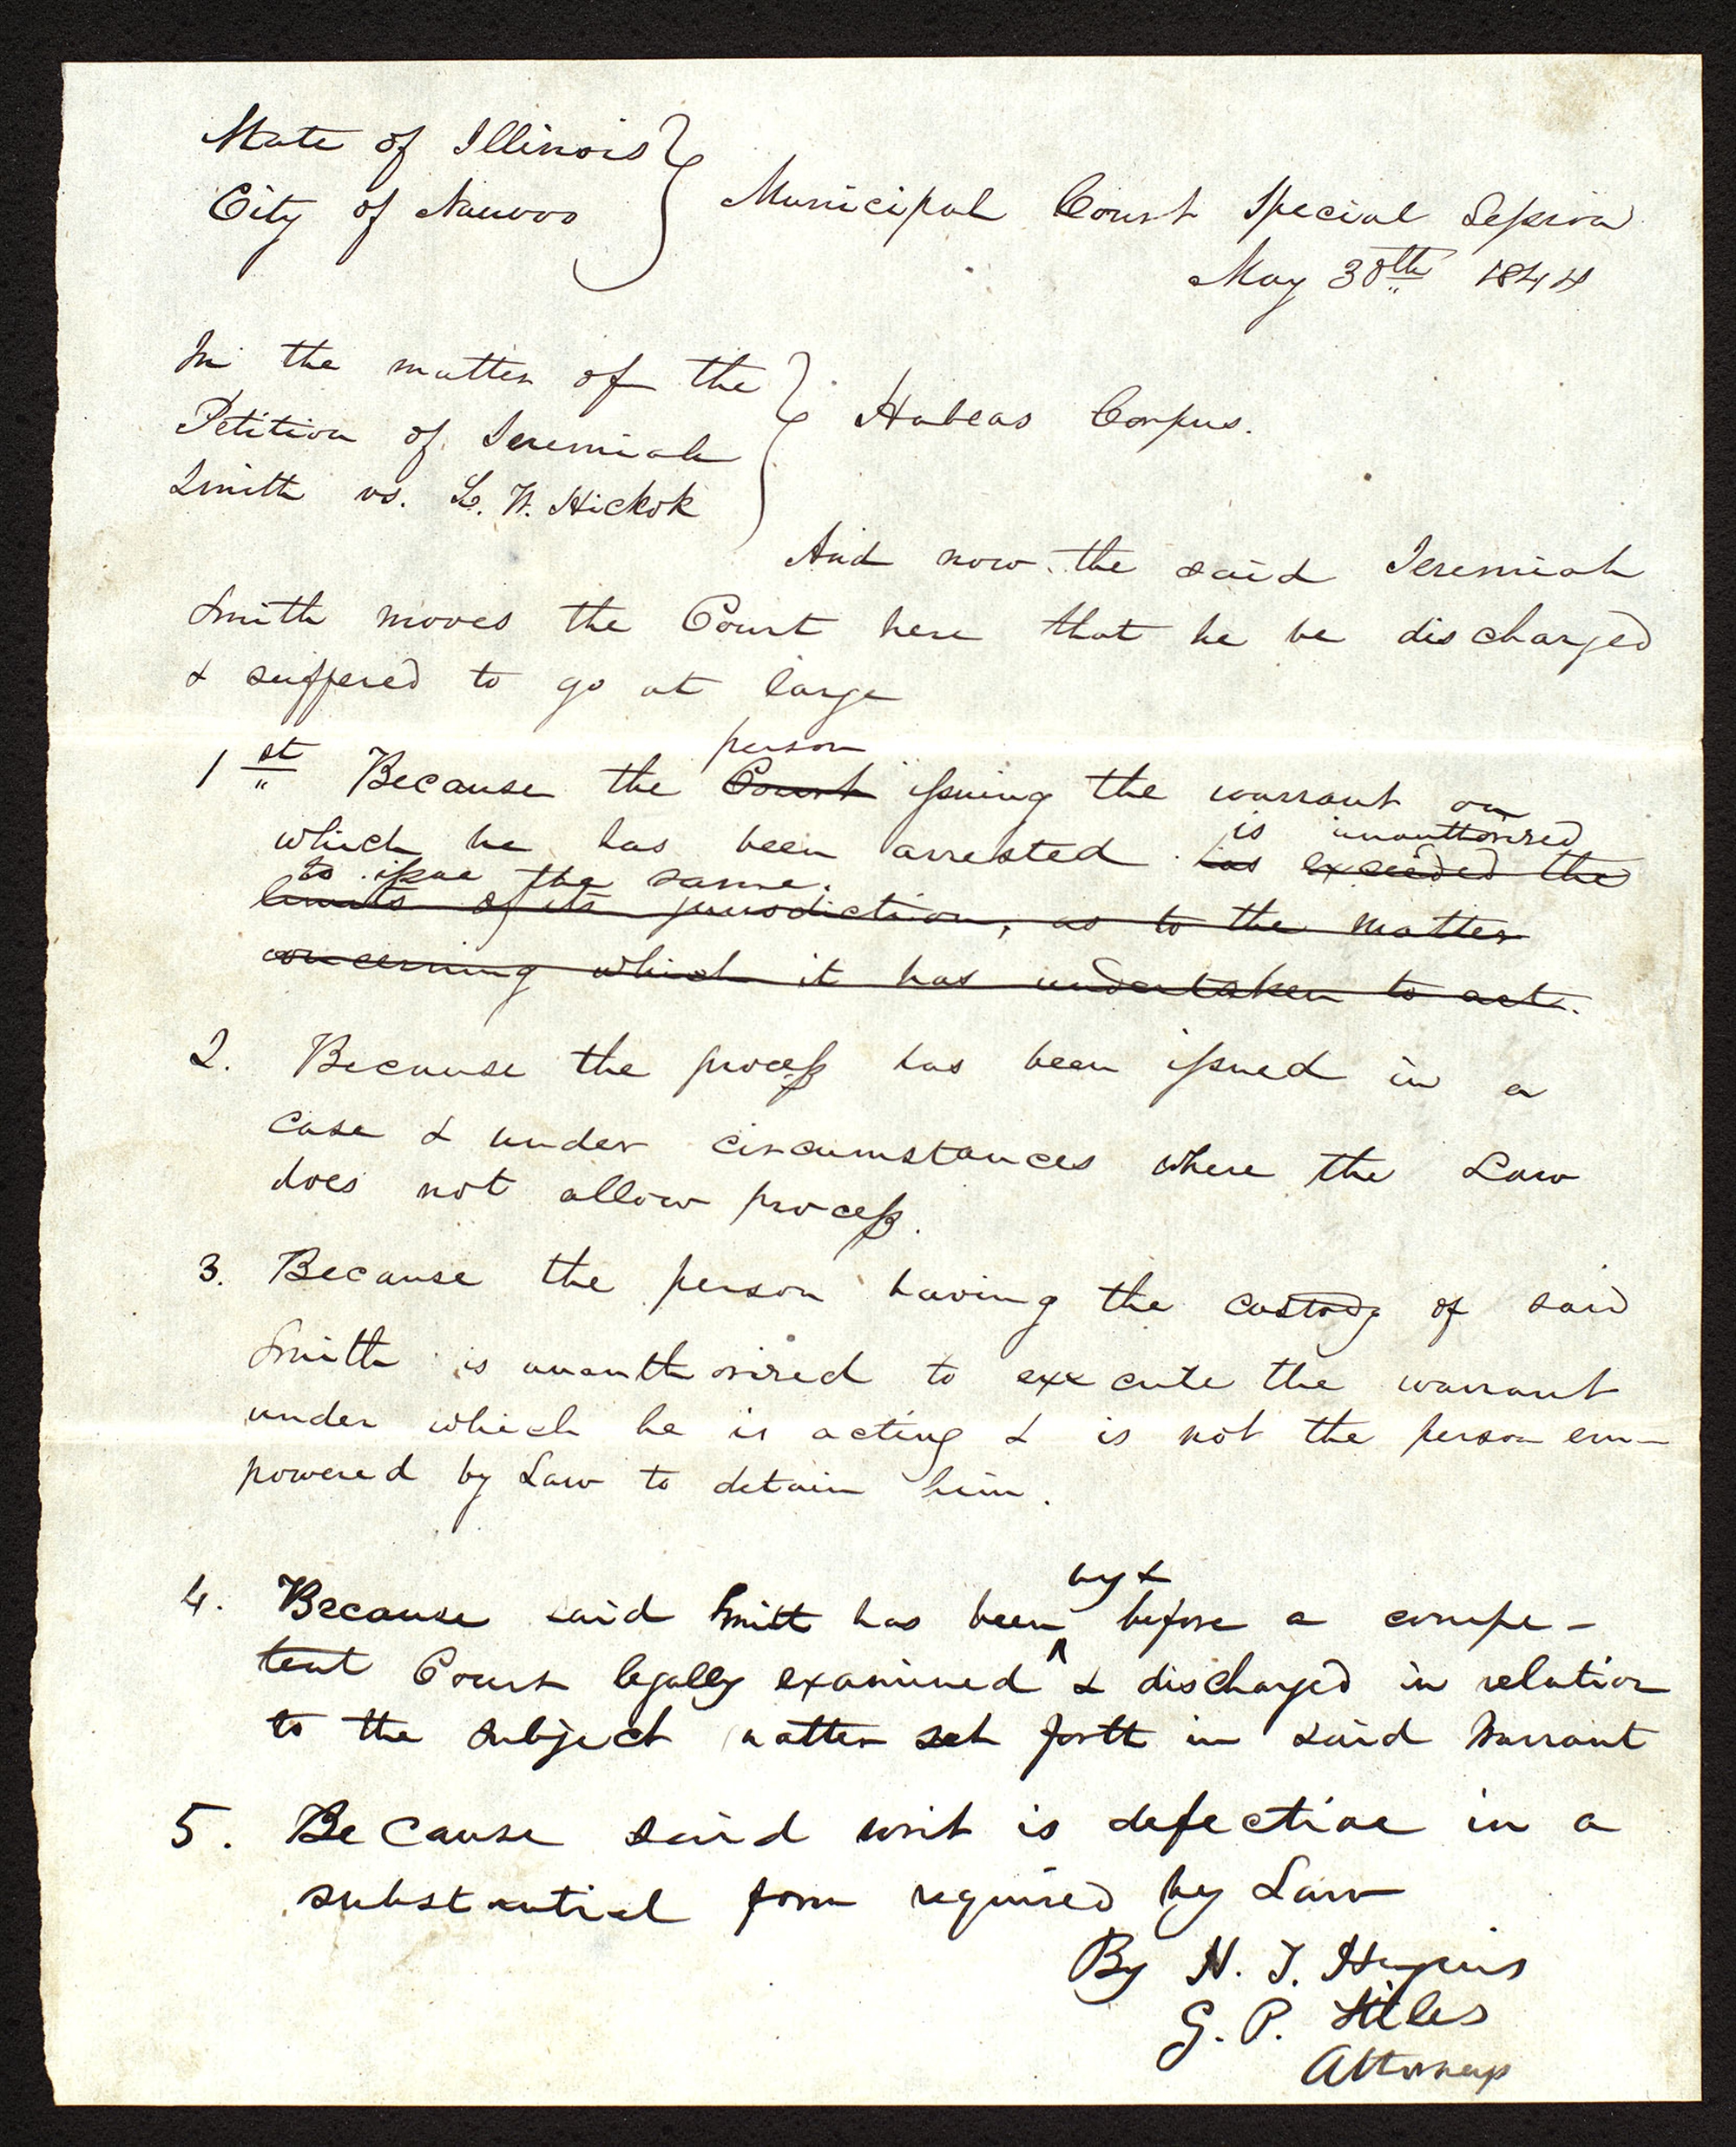 State of Illinois
City of Nauvoo
Municipal Court Special Session
May 30th 1844
In the matter of the
Petition of Jeremiah
Smith vs. L. W. Hickok
Habeas Corpus.
And now the said Jeremiah
Smith moves the Court here that he be discharged
& suffered to go at large
person
1st Because the Court issuing the warrant on
is unauthorised
which he has been arrested has exceeded the
to issue the same.
limits of its jurisdiction, as to the matter
concerning which it has undertaken to act.
2. Because the process has been issued in a
case & under circumstances where the Law
does not allow process.
3. Because the person having the custody of said
Smith is unauthorised to execute the warrant
under which he is acting & is not the person em-
powered by Law to detain him.
by &
4. Because said Smith has been ^ before a compe-
tent Court legally examined & discharged in relation
to the subject matter set forth in said Warrant
5. Because said writ is defective in a
substantial form required by Law
By H. T. Hugins
G. P. Stiles
Attorneys